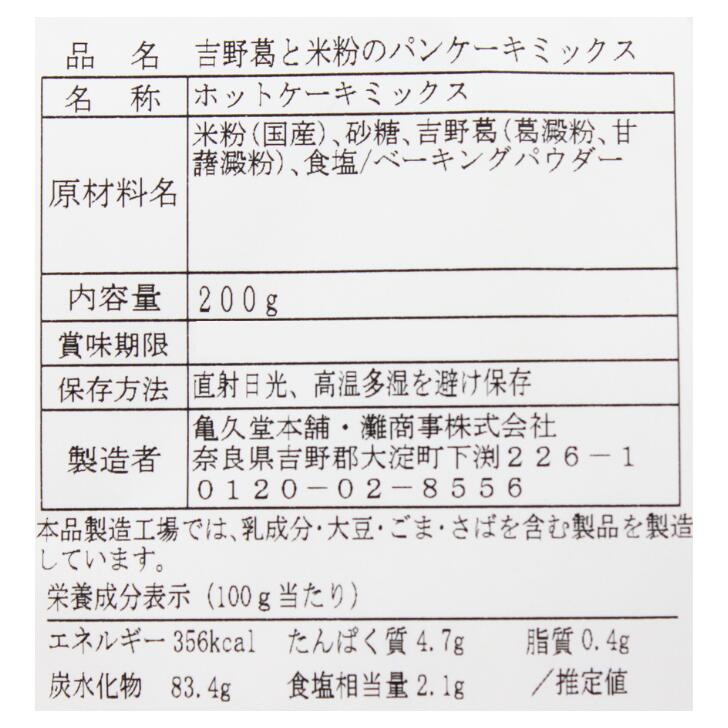 品 名 吉野葛と米粉のパンケーキミックス
名 称 ホットケーキミックス
原材料名 米粉(国産)、砂糖、吉野葛(葛澱粉、甘
藷澱粉)、食塩/ベーキングパウダー
内容量 200g
賞味期限
保存方法 直射日光、高温多湿を避け保存
製造者 亀久堂本舗・灘商事株式会社
奈良県吉野郡大淀町下渕226-1
0120-02-8556
本品製造工場では、乳成分・大豆・ごま・さばを含む製品を製造
しています。
栄養成分表示(100g当たり)
エネルギー 356kcal たんぱく質 4.7g 脂質 0.4g
炭水化物 83.4g 食塩相当量 2.1g /推定値